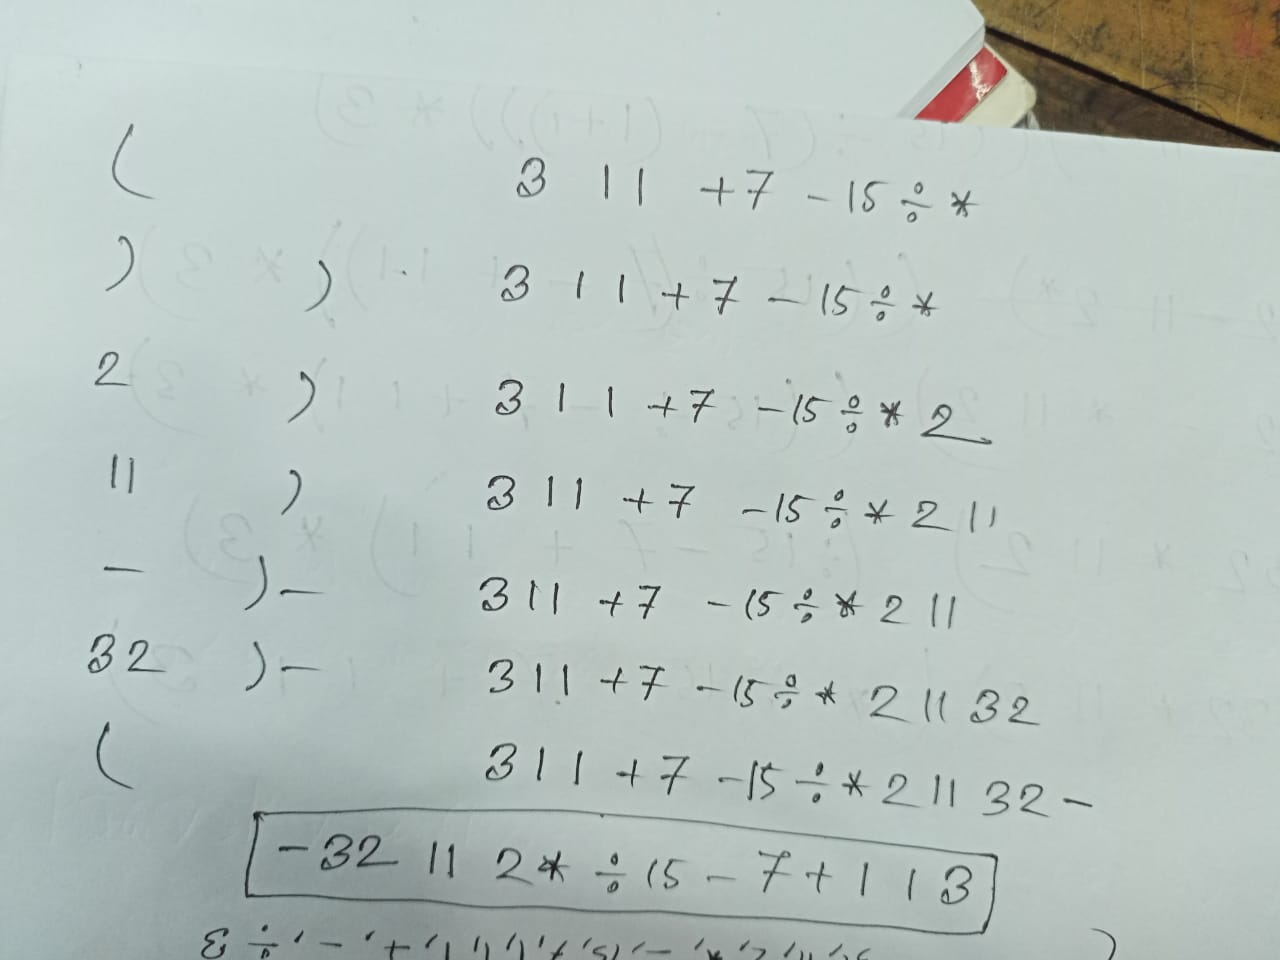 ( 3 1 1 + 7 - 15 ÷ *
) ) 3 1 1 + 7 - 15 ÷ *
2 ) 3 1 1 + 7 - 15 ÷ * 2
11 ) 3 1 1 + 7 - 15 ÷ * 2 11
- ) - 3 1 1 + 7 - 15 ÷ * 2 11
32 ) - 3 1 1 + 7 - 15 ÷ * 2 11 32
( 3 1 1 + 7 - 15 ÷ * 2 11 32 -
- 32 11 2 * ÷ 15 - 7 + 1 1 3